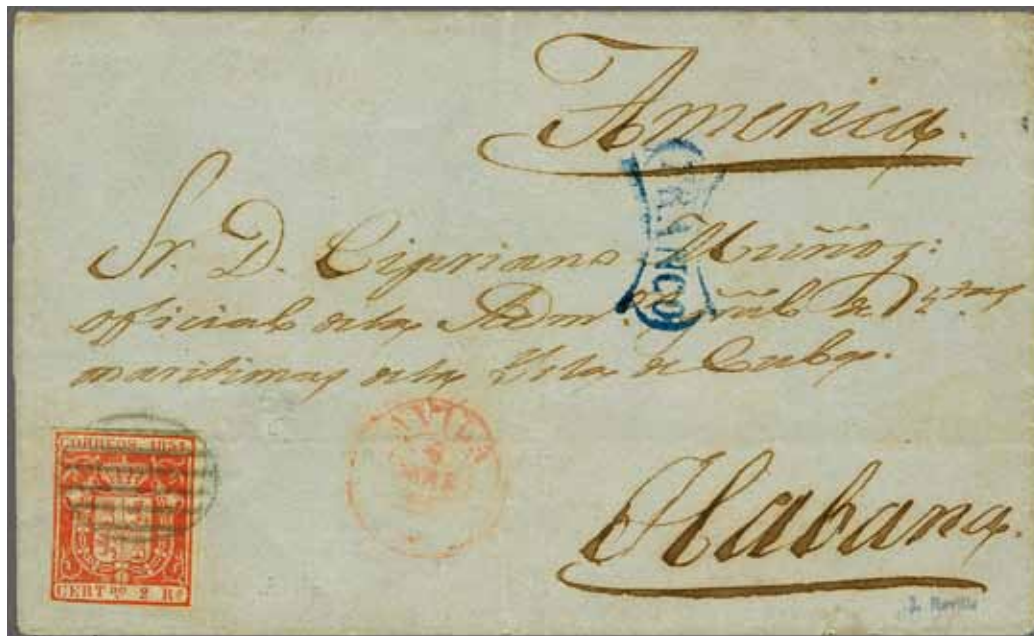 America.
Sr. D. Cipriano Muñoz.
oficial de la Adm.ⁿ de
maritimas de la Isla de Cuba.
Habana.
FRANCO
CORREOS. 1854.
CERT.ᵈᵒ 2 Rˢ